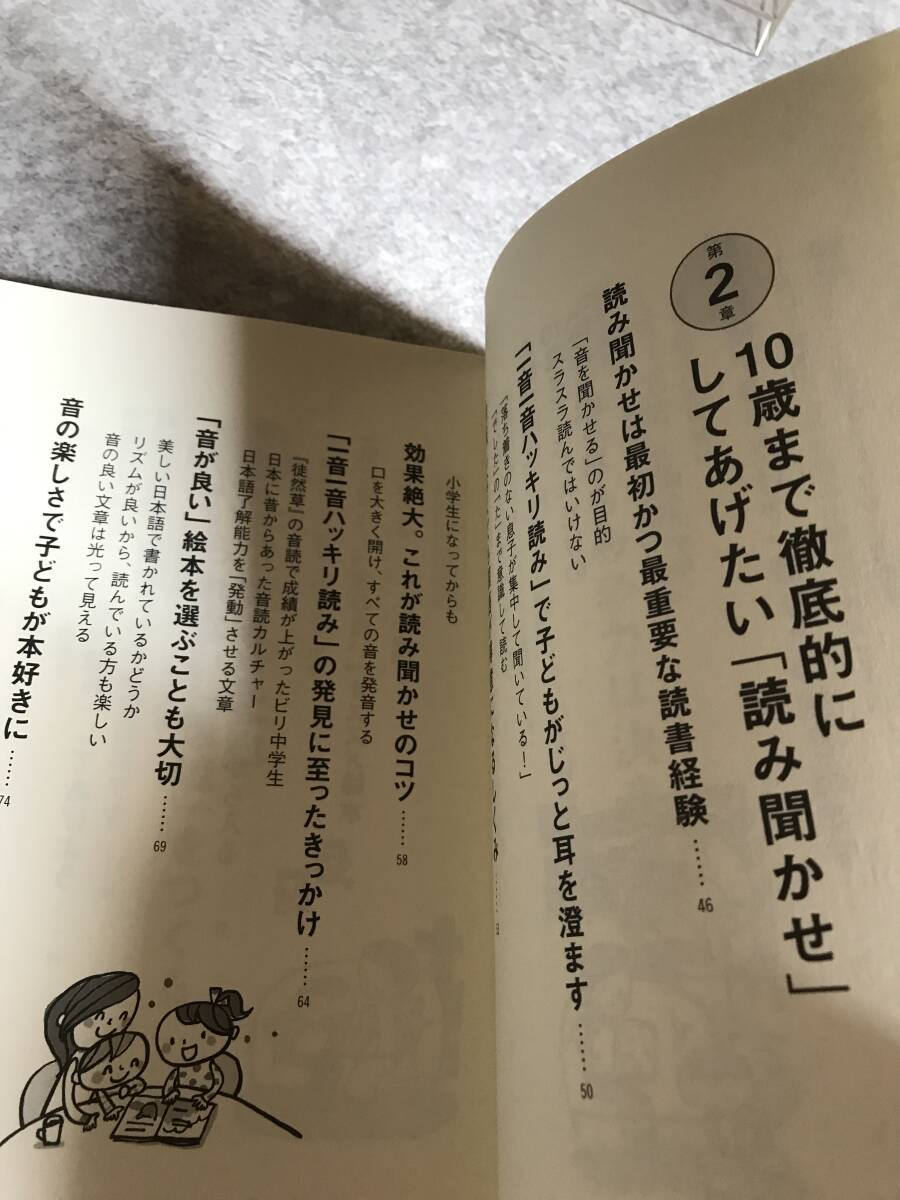 第2章
10歳まで徹底的に
してあげたい「読み聞かせ」
読み聞かせは最初かつ最重要な読書経験……46
「音を聞かせる」のが目的
スラスラ読んではいけない
「一音一音ハッキリ読み」で子どもがじっと耳を澄ます……50
「落ち着きのない息子が集中して聞いている!」
「でした」の「た」まで意識して読む
小学生になってからも
効果絶大。これが読み聞かせのコツ……58
口を大きく開け、すべての音を発音する
「一音一音ハッキリ読み」の発見に至ったきっかけ……64
『徒然草』の音読で成績が上がったビリ中学生
日本に昔からあった音読カルチャー
日本語了解能力を「発動」させる文章
「音が良い」絵本を選ぶことも大切……69
美しい日本語で書かれているかどうか
リズムが良いから、読んでいる方も楽しい
音の良い文章は光って見える
音の楽しさで子どもが本好きに……74